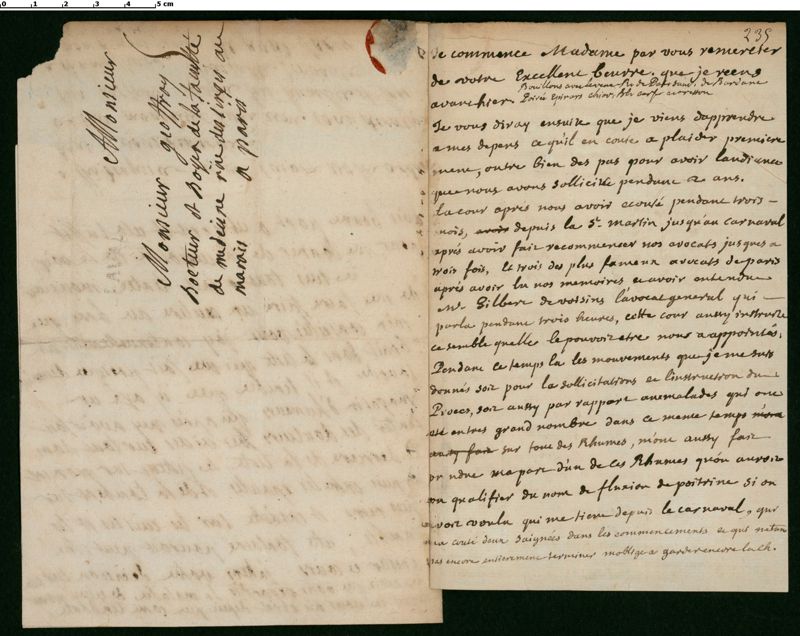 0 1 2 3 4 5 cm
Monsieur
Monsieur geoffroy
Docteur et Doyen de la faculté
de medecine rue du Cinge au
marais a paris
235
Je commence Madame par vous remercier
de votre Excellent beurre. que je viens
Bouillons avec de Bardane
avancher.
Je vous diray ensuite que je viens d'apprendre
a mes depens ce qu'il en coute a plaider premiere
ment, outre bien des pas pour avoir laudiance
que nous avons sollicitée pendant 2 ans.
la cour apres nous avoir ecouté pendant trois
mois, avoir depuis la St. martin jusqu'au carnaval
aprés avoir fait recommencer nos avocats jusques a
trois fois, et trois des plus fameux avocats de paris
aprés avoir lu nos memoires et avoir entendue
mr. Gilbert de voisins l'avocat general qui
parla pendant trois heures, cette cour aussy instruite
ce semble quelle le pouvoit etre nous a appointés,
Pendant ce temps la les mouvements que je me suis
donnés soit pour la sollicitations et linstruction du
Proces, soit aussy par rapport aux malades qui ont
eté en tres grand nombre dans ce meme temps m'ont
aussy fait sur tout des Rhumes, m'ont aussy fait
prendre ma part d'un de ces Rhumes qu'on auroit
pu qualifier du nom de fluxion de poitrine si on
avoit voulu qui me tient depuis le carnaval, qui
m'a couté deux saignées dans les commencements et qui n'etant
pas encore entierement terminer m'oblige a garder encore la ch.